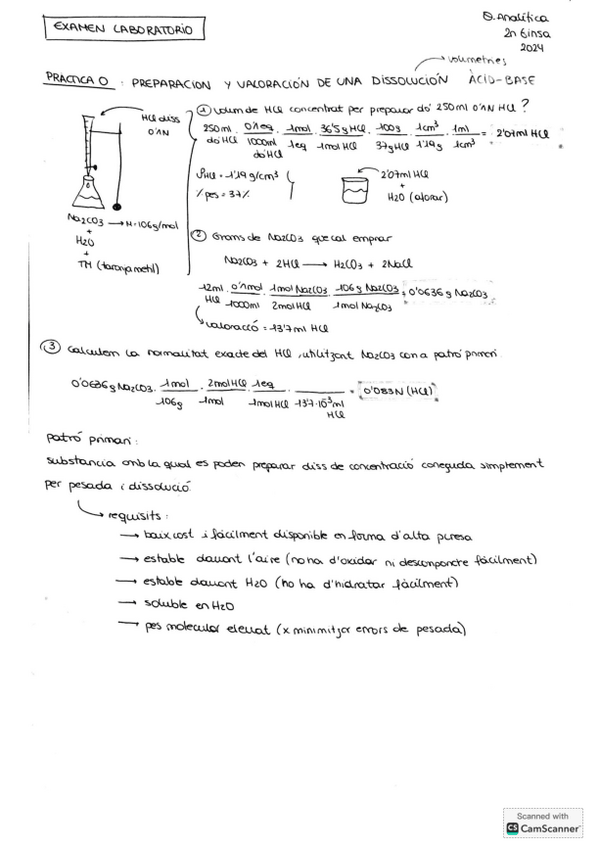 EXAMEN LABORATORIO
Q. Analítica
2n Ginsa
2024
volumetries
PRACTICA 0 : PREPARACION Y VALORACIÓN DE UNA DISSOLUCIÓN ÀCID-BASE
HCl diss
0'1N
① Volum de HCl concentrat per preparar do 250ml 0'1N HCl ?
250ml do HCl · 0'1eq / 1000ml do HCl · 1mol / 1eq · 36'5gHCl / 1molHCl · 100g / 37gHCl · 1cm³ / 1'19g · 1ml / 1cm³ = 2'07ml HCl
ρHCl = 1'19 g/cm³
% pes = 37%
2'07ml HCl
+
H2O (aforar)
Na2CO3 → M=106g/mol
+
H2O
+
TM (taronja metil)
② Grams de Na2CO3 que cal emprar
Na2CO3 + 2HCl → H2CO3 + 2NaCl
12ml HCl · 0'1mol / 1000ml · 1mol Na2CO3 / 2mol HCl · 106g Na2CO3 / 1mol Na2CO3 = 0'0636 g Na2CO3
valoració = 13'7ml HCl
③ Calculem la normalitat exacte del HCl, utilitzant Na2CO3 com a patró primari.
0'0636g Na2CO3 · 1mol / 106g · 2molHCl / 1mol · 1eq / 1molHCl · / 13'7·10⁻³ml HCl = 0'083N (HCl)
Patró primari:
substancia amb la qual es poden preparar diss de concentració coneguda simplement
per pesada i dissolució
→ requisits:
→ baix cost i fàcilment disponible en forma d'alta puresa
→ estable davant l'aire (no ha d'oxidar ni descompondre fàcilment)
→ estable davant H2O (no ha d'hidratar fàcilment)
→ soluble en H2O
→ pes molecular elevat (x minimitzar errors de pesada)
Scanned with
CS CamScanner